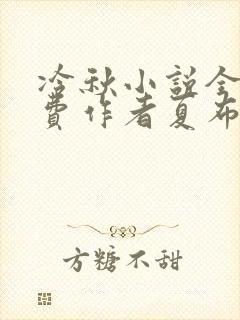 冷秋小説全
費作者夏布
方糖不甜